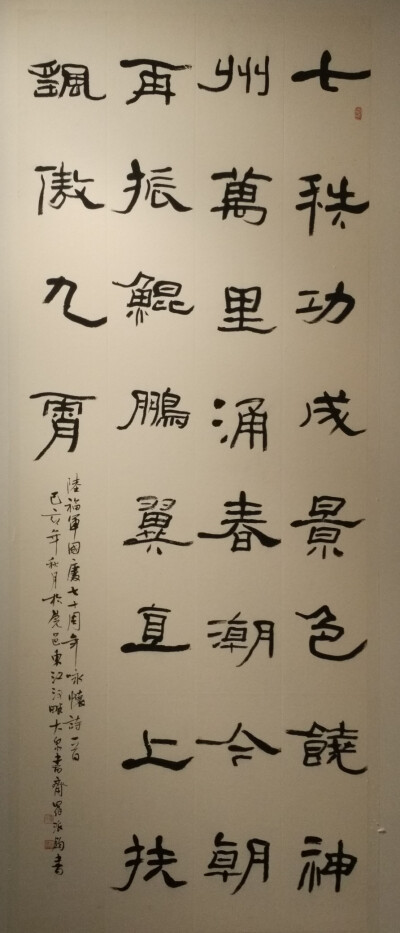 七秩功成景色饒神
州萬里涌春潮今朝
再振鯤鵬翼直上扶
飖傲九霄
陸福軍國慶七十周年咏懷詩一首
己亥年秋月於邑東江河畔大泉書齋書